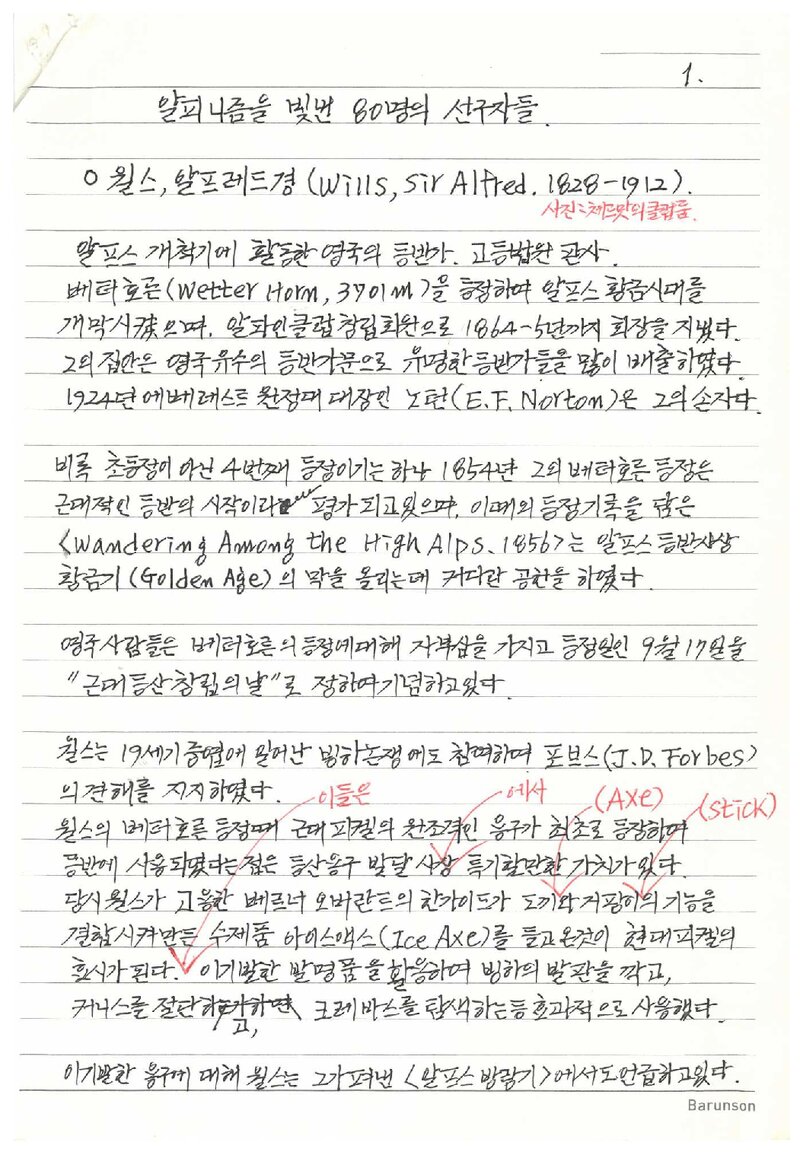 1.
알피니즘을 빛낸 80명의 선구자들.
○ 윌스, 알프레드경 (Wills, Sir Alfred. 1828-1912).
사진:체르맛의클럽룸.
알프스 개척기에 활동한 영국의 등반가. 고등법원 판사.
베터호른(Wetter Horn, 3701m)을 등정하여 알프스 황금시대를
개막시켰으며, 알파인클럽 창립회원으로 1864-5년까지 회장을 지냈다.
그의 집안은 영국 유수의 등반가문으로 유명한 등반가들을 많이 배출하였다.
1924년 에베레스트 원정대 대장인 노턴(E.F. Norton)은 그의 손자다.
비록 초등정이 아닌 4번째 등정이기는 하나 1854년 그의 베터호른 등정은
근대적인 등반의 시작이라 평가되고있으며, 이때의 등정기록을 담은
〈Wandering Among the High Alps. 1856〉는 알프스 등반사상
황금기(Golden Age)의 막을 올리는데 커다란 공헌을 하였다.
영국사람들은 베터호른의 등정에대해 자부심을 가지고 등정일인 9월 17일을
"근대등산 창립의 날"로 정하여 기념하고있다.
윌스는 19세기 중엽에 일어난 빙하논쟁에도 참여하며 포브스(J.D. Forbes)
의 견해를 지지하였다.
이들은 에서 (AXe) (Stick)
윌스의 베터호른 등정때 근대피켈의 원조격인 용구가 최초로 등장하여
등반에 사용되였다는 점은 등산용구 발달 사상 특기할만한 가치가 있다.
당시 윌스가 고용한 베르너 오버란트의 한 가이드가 도끼와 지팡이의 기능을
결합시켜만든 수제품 아이스액스(Ice Axe)를 들고온것이 현대피켈의
효시가 된다. 이기발한 발명품을 활용하여 빙하의 발판을 깍고,
커니스를 절단하고, 크레바스를 탐색하는등 효과적으로 사용했다.
이기발한 용구에 대해 윌스는 그가 펴낸 〈알프스 방랑기〉에서도 언급하고있다.
Barunson